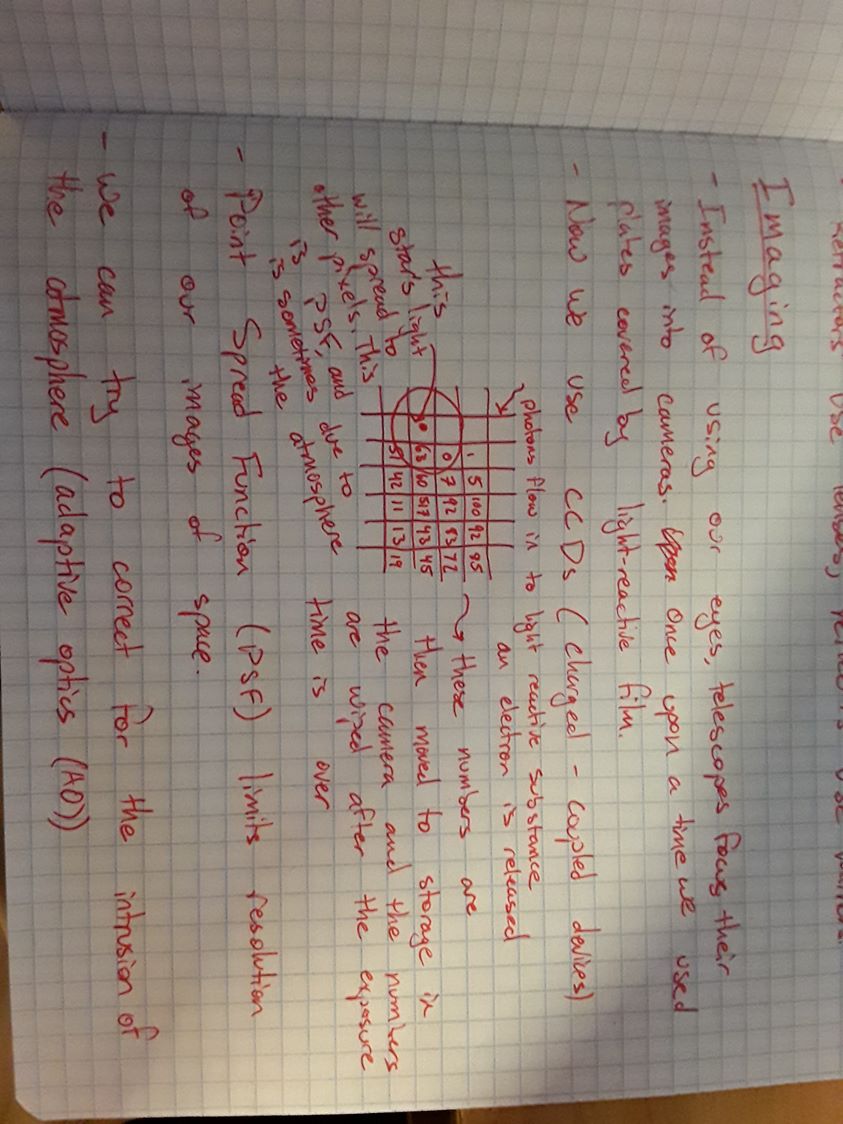 Refractors use lenses, reflectors use mirrors.
Imaging
- Instead of using our eyes, telescopes focus their
images into cameras. Once upon a time we used
plates covered by light-reactive film.
- Now we use CCDs (charged-coupled devices)
photons flow in to light reactive substance
an electron is released
1 5 100 92 85
0 7 92 83 72
63 60 57 43 45
51 42 11 13 19
this
star's light
will spread to
other pixels. this
is PSF, and
is sometimes due to
the atmosphere
these numbers are
then moved to storage in
the camera and the numbers
are wiped after the exposure
time is over
- Point Spread Function (PSF) limits resolution
of our images of space.
- We can try to correct for the intrusion of
the atmosphere (adaptive optics (AO))